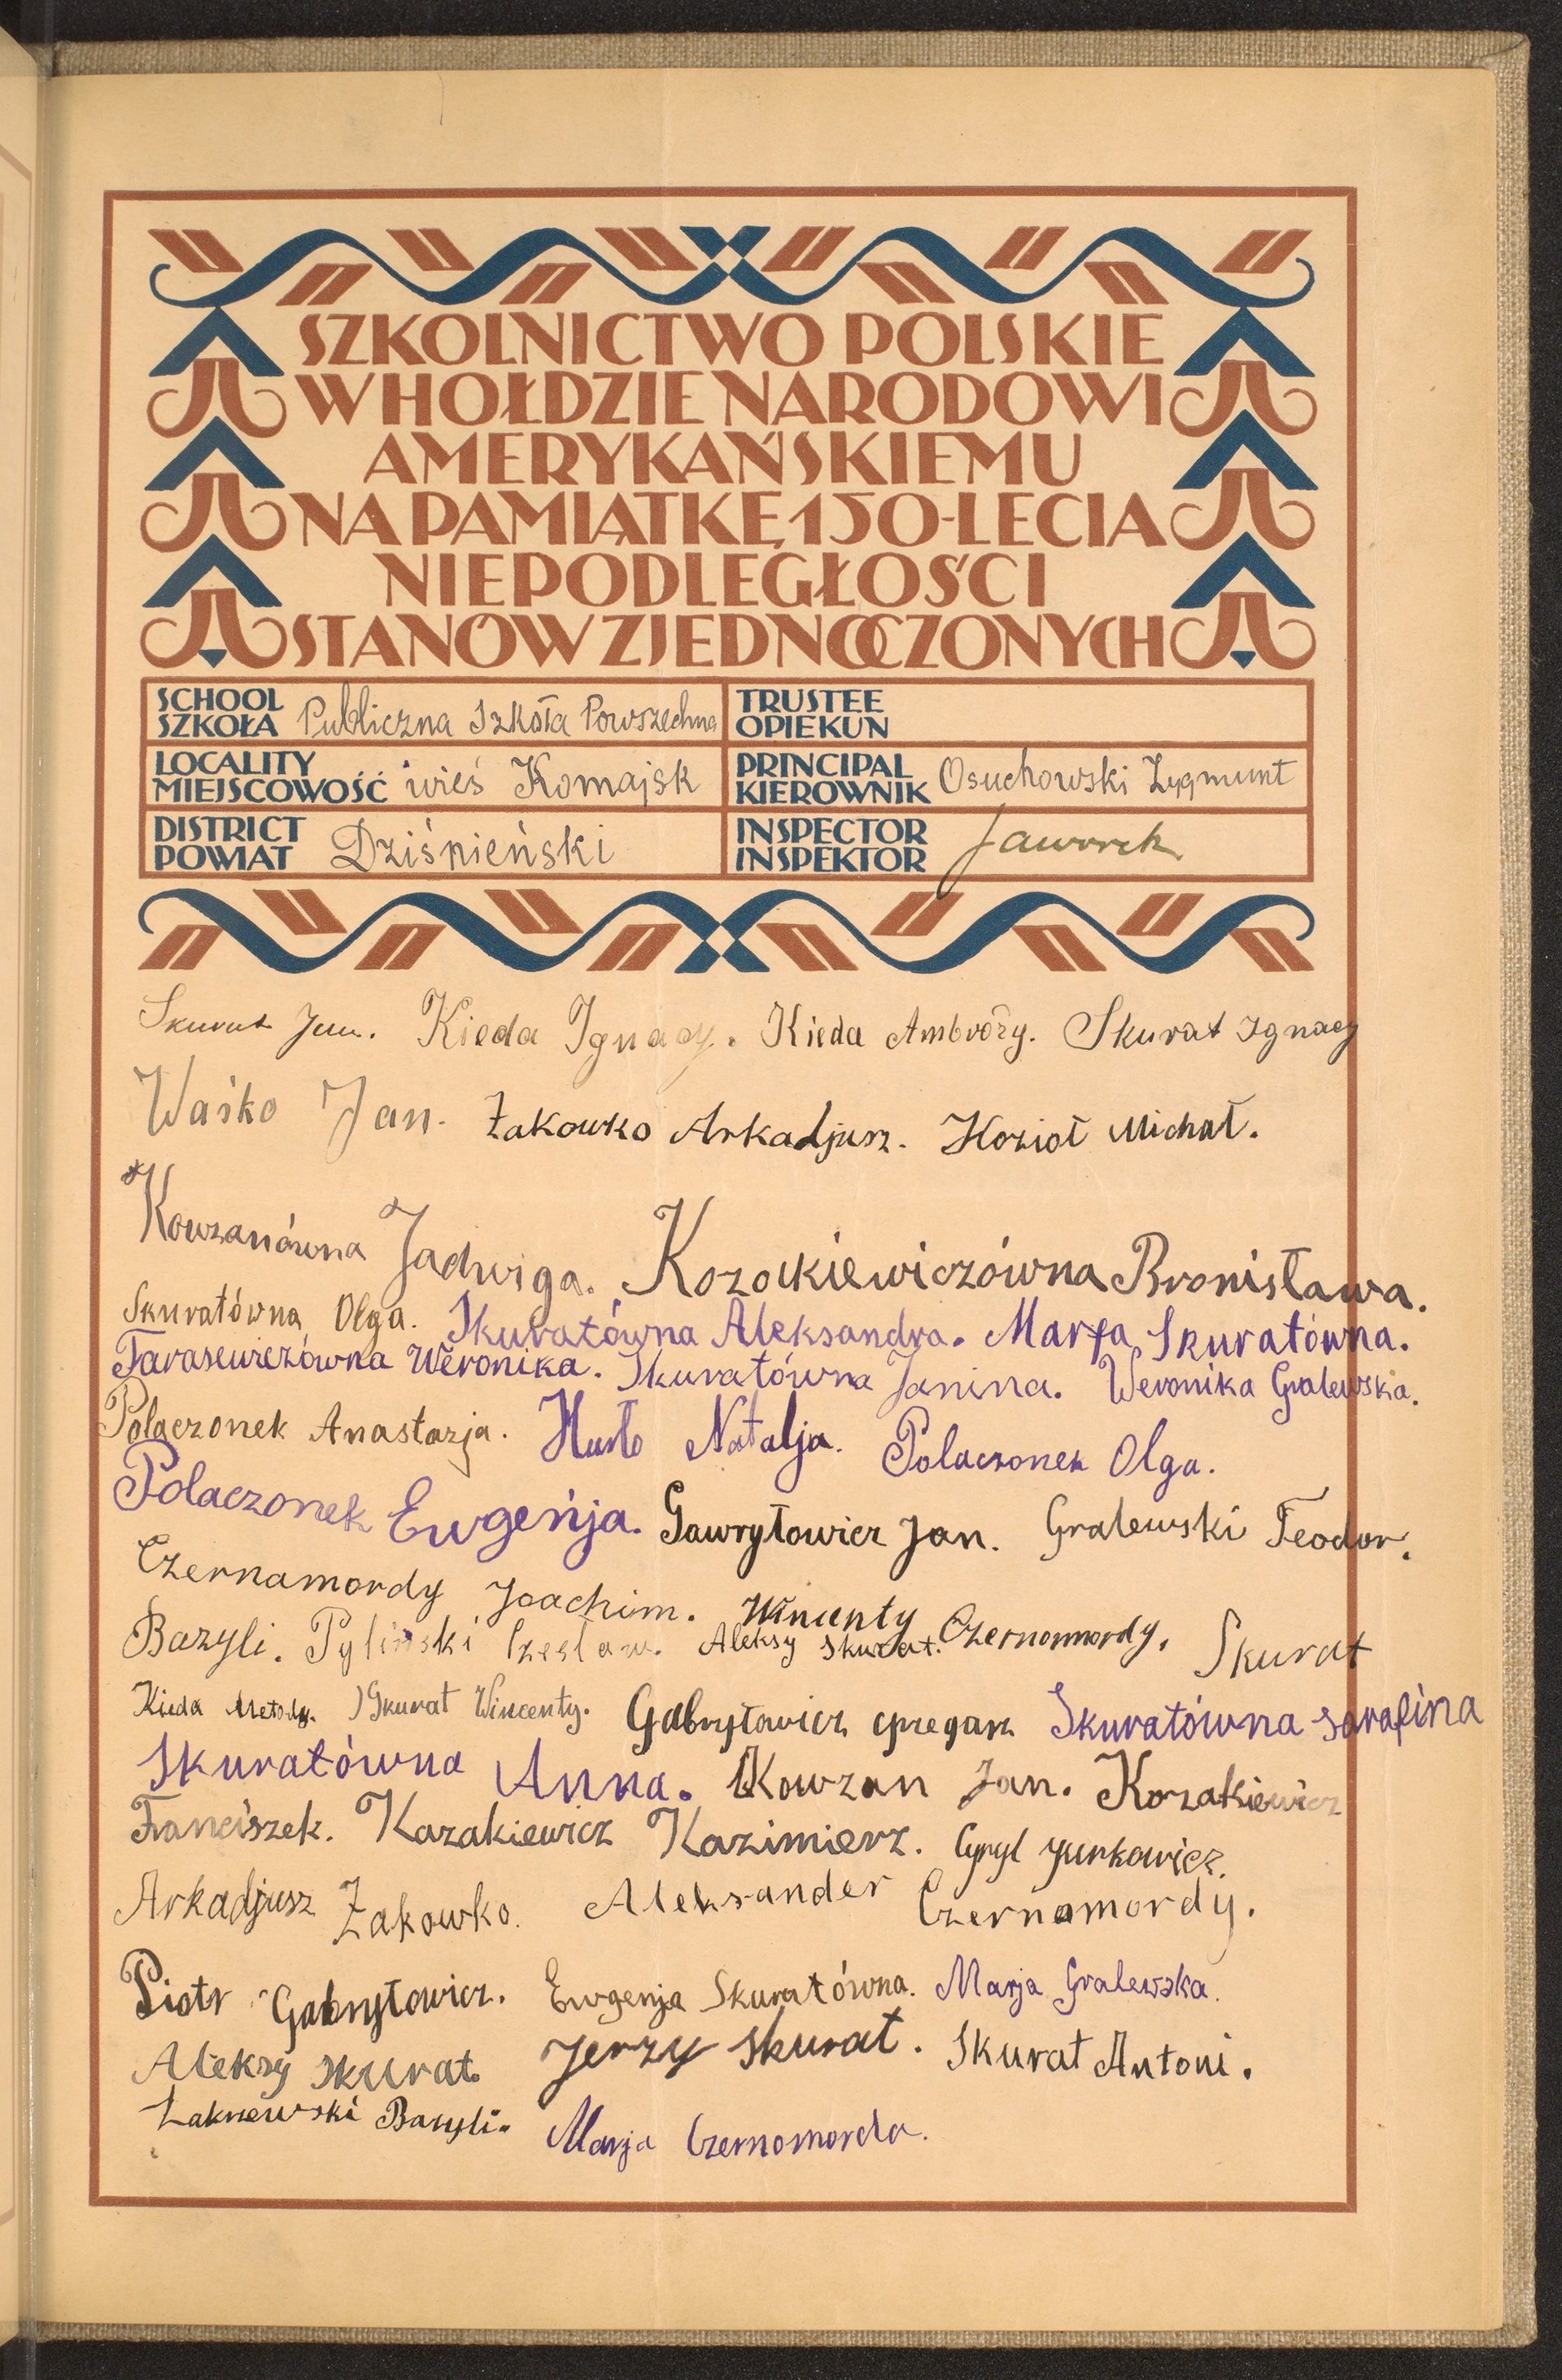 SZKOLNICTWO POLSKIE
W HOŁDZIE NARODOWI
AMERYKAŃSKIEMU
NA PAMIĄTKĘ 150-LECIA
NIEPODLEGŁOŚCI
STANÓW ZJEDNOCZONYCH
SCHOOL
SZKOŁA Publiczna Szkoła Powszechna
TRUSTEE
OPIEKUN
LOCALITY
MIEJSCOWOŚĆ wieś Komajsk
PRINCIPAL
KIEROWNIK Osuchowski Zygmunt
DISTRICT
POWIAT Dziśnieński
INSPECTOR
INSPEKTOR Jaworek
Skurat Jan. Kieda Ignacy. Kieda Ambroży. Skurat Ignacy
Waśko Jan. Żakowko Arkadjusz. Kozioł Michał.
Kowzanówna Jadwiga. Kozakiewiczówna Bronisława.
Skuratówna Olga. Skuratówna Aleksandra. Marfa Skuratówna.
Tarasewiczówna Weronika. Skuratówna Janina. Weronika Gralewska.
Polaczonek Anastazja. Natalja. Polaczonek Olga.
Polaczonek Ewgenja. Gawryłowicz Jan. Gralewski Feodor.
Czernamordy Joachim. Wincenty Czernomordy. Skurat
Bazyli. Pyliński Czesław. Aleksy Skurat.
Kieda Metody. Skurat Wincenty. Gabryłowicz Skuratówna Sarafina
Skuratówna Anna. Kowzan Jan. Kozakiewicz
Franciszek. Kazakiewicz Kazimierz. Cyryl Yurkowicz.
Arkadjusz Żakowko. Aleksander Czernamordy.
Piotr Gabryłowicz. Ewgenja Skuratówna. Marja Gralewska.
Aleksy Skurat. Jerzy Skurat. Skurat Antoni.
Bazyli. Marja Czernomorda.